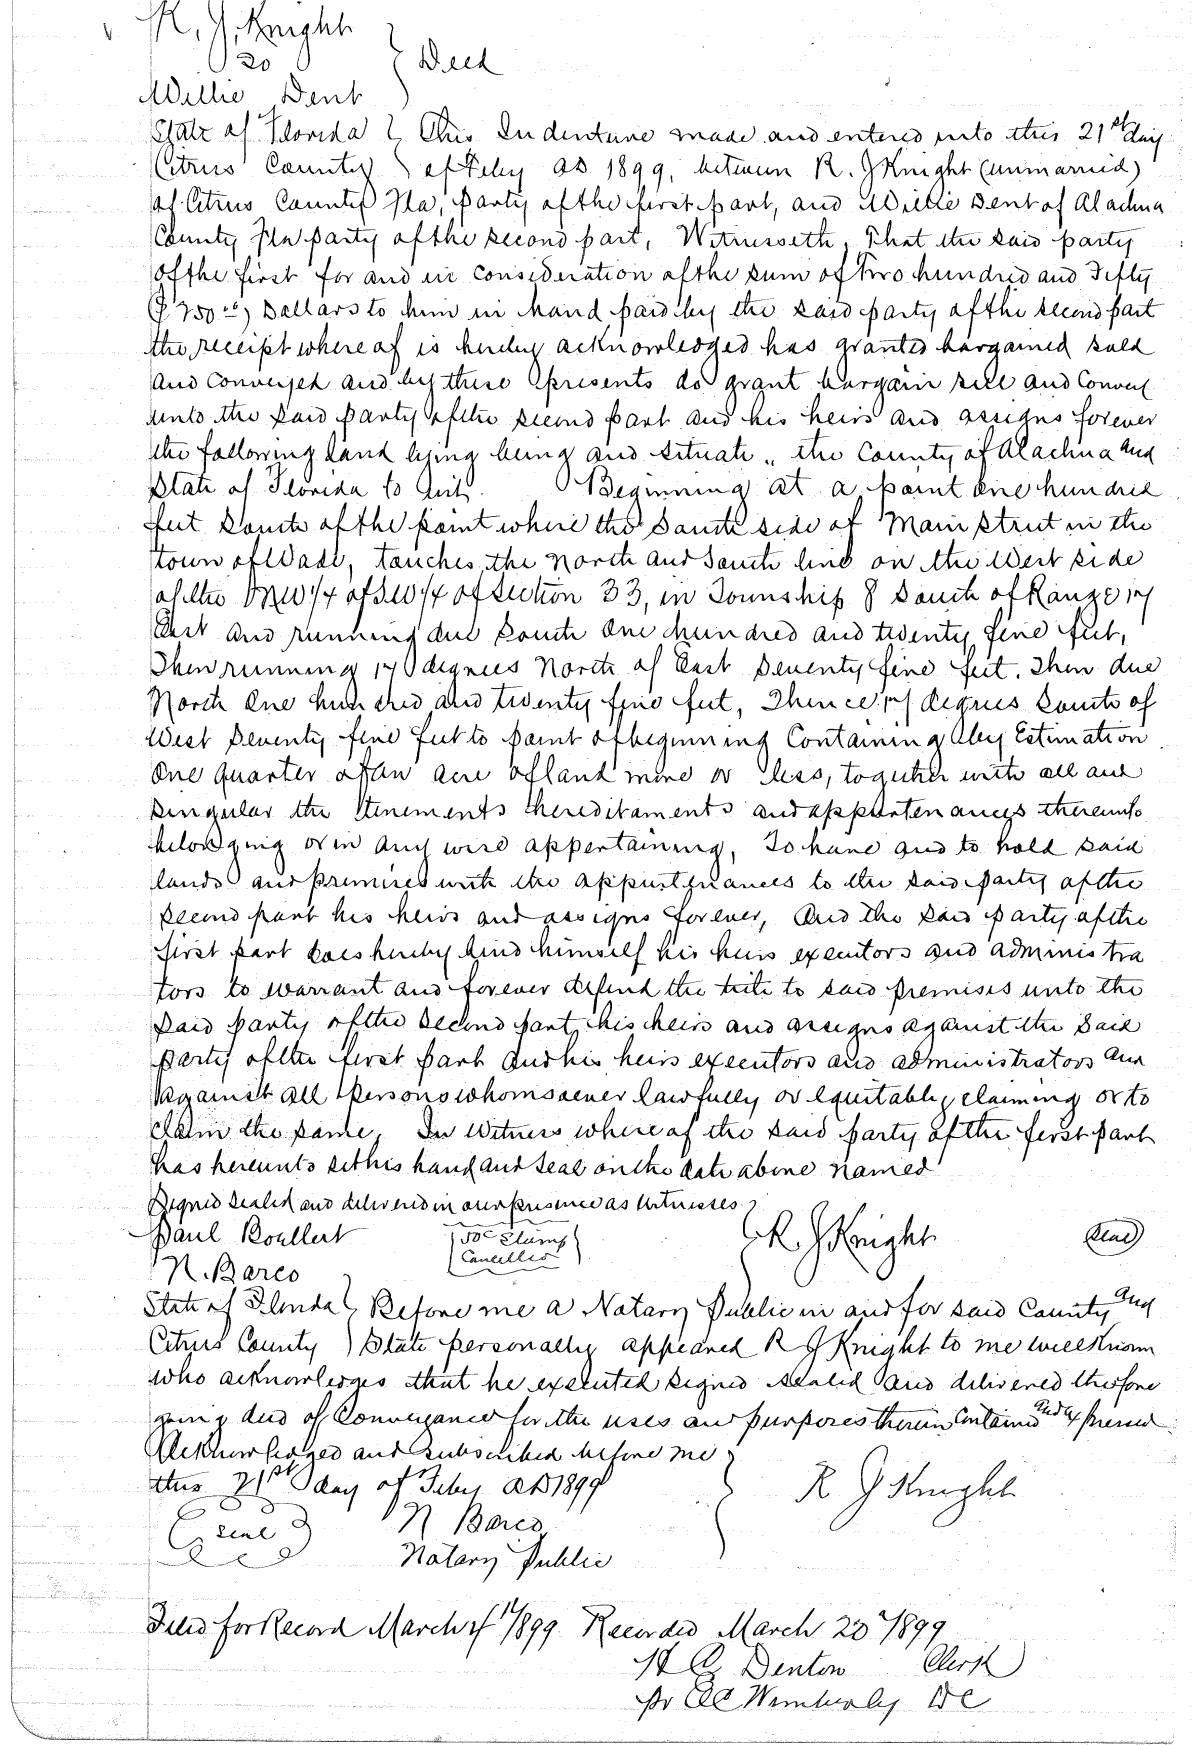 R. J. Knight
to } Deed
Willie Dent
State of Florida } This Indenture made and entered into this 21st day
Citrus County } of Feby AD 1899, between R. J Knight (unmarried)
of Citrus County Fla, party of the first part, and Willie Dent of Alachua
County Fla party of the second part, Witnesseth, That the said party
of the first for and in consideration of the sum of Two hundred and Fifty
($250 00) Dollars to him in hand paid by the said party of the second part
the receipt whereof is hereby acknowledged has granted bargained sold
and conveyed and by these presents do grant bargain sell and convey
unto the said party of the second part and his heirs and assigns forever
the following land lying being and situate " the County of Alachua and
State of Florida to wit. Beginning at a point One hundred
feet South of the point where the South side of Main Street in the
town of Wade, touches the North and South line on the West side
of the NW 1/4 of SW 1/4 of Section 33, in Township 8 South of Range 17
East and running due South One hundred and twenty five feet,
Then running 17 degrees North of East Seventy five feet. Then due
North One hundred and twenty five feet, Thence 17 degrees South of
West Seventy five feet to point of beginning Containing by Estimation
One quarter of an acre of land more or less, together with all and
singular the tenements hereditaments and appurtenances thereunto
belonging or in any wise appertaining, To have and to hold said
lands and premises with the appurtenances to the said party of the
second part his heirs and assigns forever, And the said party of the
first part does hereby bind himself his heirs executors and administra
tors to warrant and forever defend the title to said premises unto the
said party of the second part, his heirs and assigns against the said
party of the first part and his heirs executors and administrators and
against all persons whomsoever lawfully or equitably claiming or to
claim the same, In Witness whereof the said party of the first part
has hereunto set his hand and seal on the date above named
Signed sealed and delivered in our presence as witnesses }
Paul Boullert (50c Stamp R. J Knight (seal)
N. Barco Cancelled)
State of Florida } Before me a Notary Public in and for said County and
Citrus County } State personally appeared R J Knight to me well known
who acknowledges that he executed signed sealed and delivered the fore
going deed of Conveyance for the uses and purposes therein contained and expressed
Acknowledged and subscribed before me }
this 21st day of Feby AD 1899 R J Knight
(seal) N Barco
Notary Public
Filed for Record March 4" 1899 Recorded March 20" 1899
H C Denton Clerk
pr CC Wimberly DC